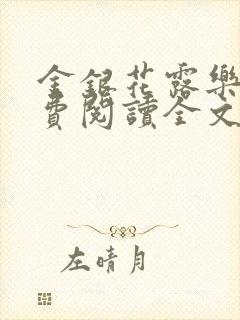 金銀花露樂
費閱讀全文
左晴月